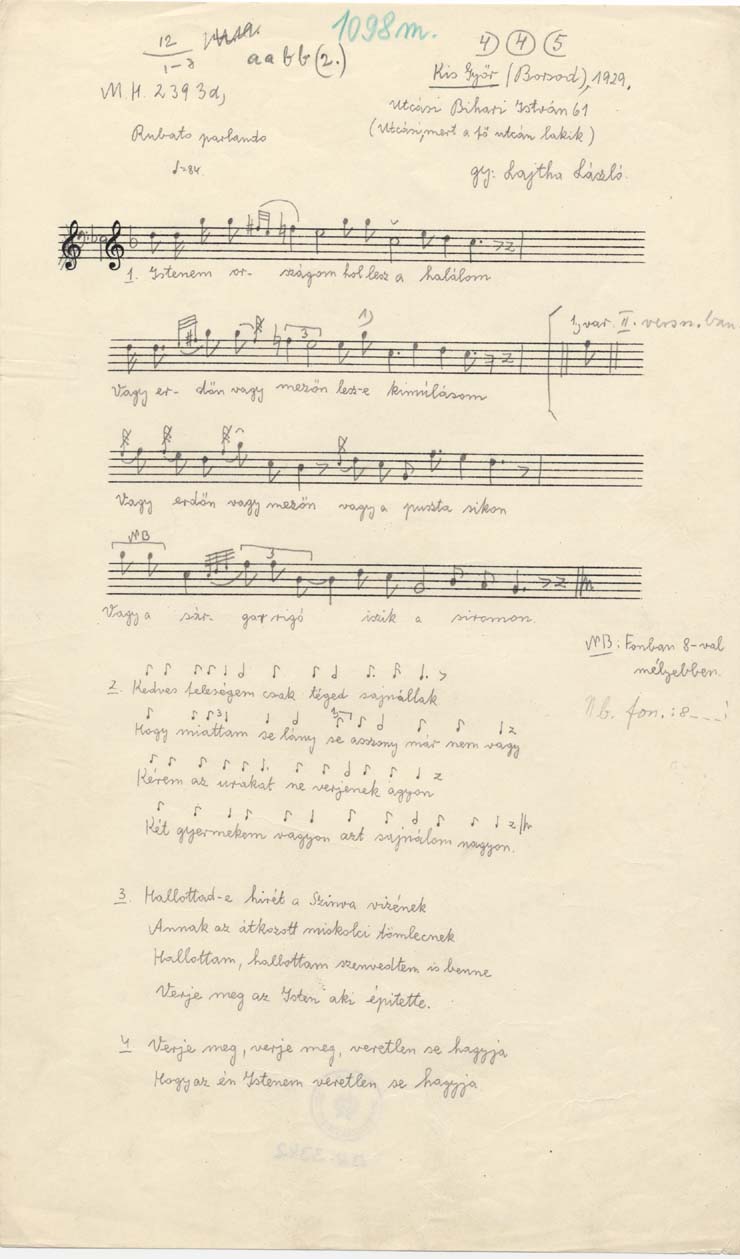 1098 m.
12
1-7
a a b b (2.)
4) (4) (5)
M. H. 2393d,
Kis Győr (Borsod), 1929.
Utcási Bihari István 61
(Utcási, mert a fő utcán lakik)
Rubato parlando
♩=84.
gy: Lajtha László.
1. Istenem or- szágom hol lesz a halálom
1)
3
1) var. II. versz.-ban
Vagy er- dőn vagy mezőn lesz-e kimúlásom
Vagy erdőn vagy mezőn vagy a puszta sikon
NB
3
Vagy a sár- garrigó iszik a siromon.
NB: Fonban 8-val
mélyebben.
Nb. fon.: 8---!
2. Kedves feleségem csak téged sajnállak
3
1)
Hogy miattam se lány se asszony már nem vagy
Kérem az urakat ne verjenek agyon
Két gyermekem vagyon azt sajnálom nagyon.
3. Hallottad-e hirét a Szinva vizének
Annak az átkozott miskolci tömlecnek
Hallottam, hallottam szenvedtem is benne
Verje meg az Isten aki épitette.
4 Verje meg, verje meg, veretlen se hagyja
Hogy az én Istenem veretlen se hagyja